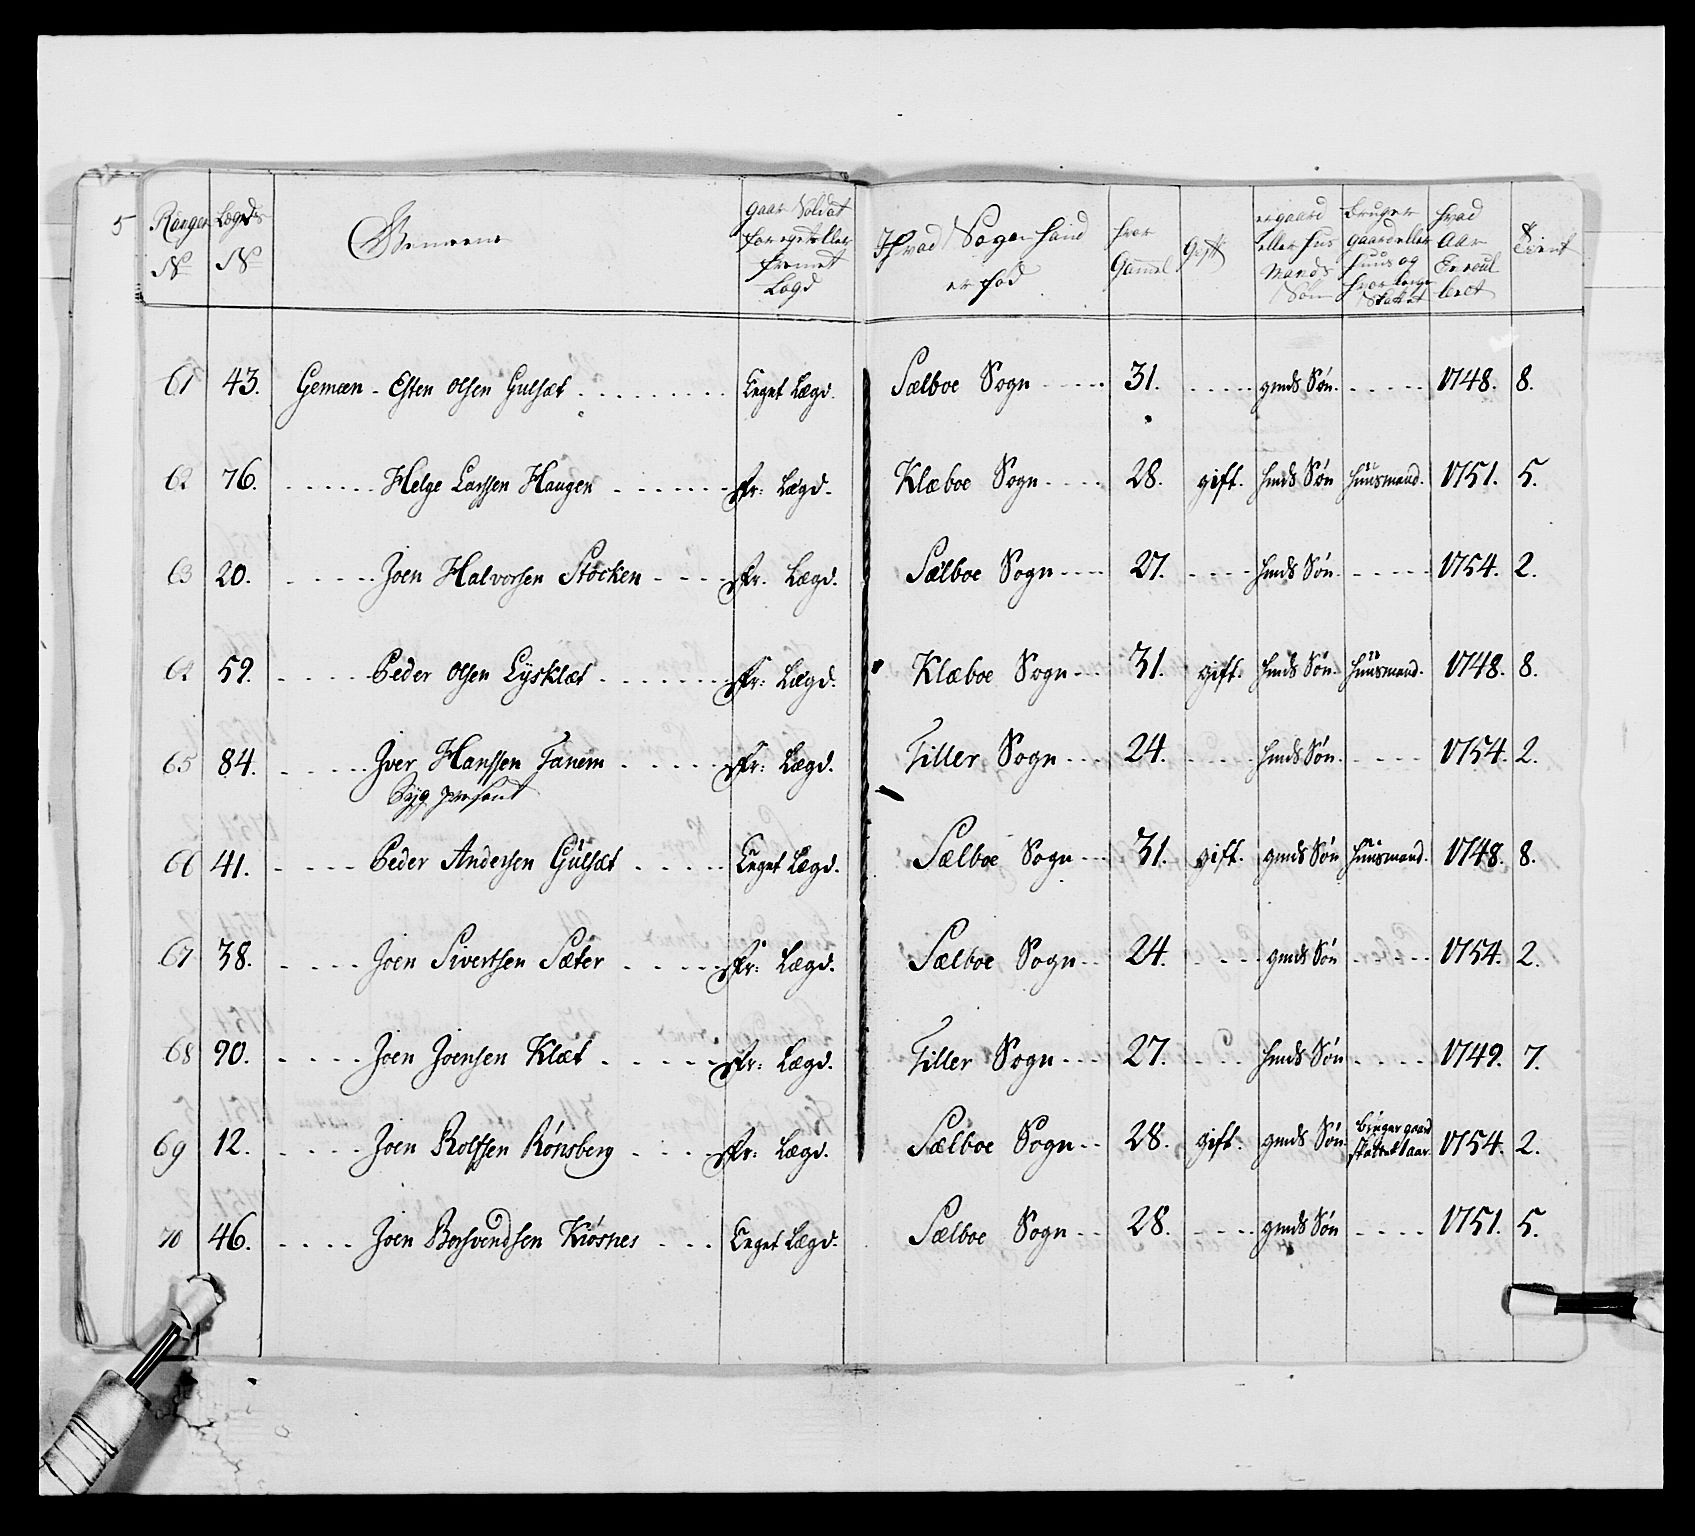 5
Ranger No
Lægds No
Gemeene
gaar Soldat for eget eller fremet Lægd
I hvad Sogn hand er fød
hvor Gammel
Gift
er gaard eller hus mands Søn
bruger gaard eller huus og hvor længe skattet
hvad Aar Enroulleret
Tient
61 43. Gemæn - Esten Olsen Gulsæt - - - Eeget Lægd. Sælboe Sogn - - - 31. - - - gmds Søn. - - - 1748. 8.
62 76. - - - Helge Larssen Haugen - - - Fr: Lægd. Klæboe Sogn - - - 28. gift. hmds Søn huusmand. 1751. 5.
63 20. - - - Joen Halvorsen Stocken - - - Fr: Lægd. Sælboe Sogn - - - 27. - - - hmds Søn. - - - 1754. 2.
64 59. - - - Peder Olsen Lysklæt - - - Fr: Lægd. Klæboe Sogn - - - 31. gift. hmds Søn. huusmand. 1748. 8.
65 84. - - - Iver Hanssen Tanem - - - Fr: Lægd. Tiller Sogn - - - 24. - - - hmds Søn. - - - 1754. 2.
66 41. - - - Peder Andersen Gulsæt - - - Eeget Lægd. Sælboe Sogn - - - 31. gift. gmds Søn huusmand. 1748. 8.
67 38. - - - Joen Sivertsen Sæter - - - Fr: Lægd. Sælboe Sogn - - - 24. - - - gmds Søn - - - 1754. 2.
68 90. - - - Joen Joensen Klæt - - - Fr: Lægd. Tiller Sogn - - - 27. - - - hmds Søn - - - 1749. 7.
69 12. - - - Joen Rolfsen Rønsberg - - - Fr: Lægd. Sælboe Sogn - - - 28. gift. gmds Søn bruger gaard skattet 1 aar 1754. 2.
70 46. - - - Joen Borsvendsen Kiøsnes - - - Eeget Lægd. Sælboe Sogn - - - 28. - - - gmds Søn - - - 1751. 5.